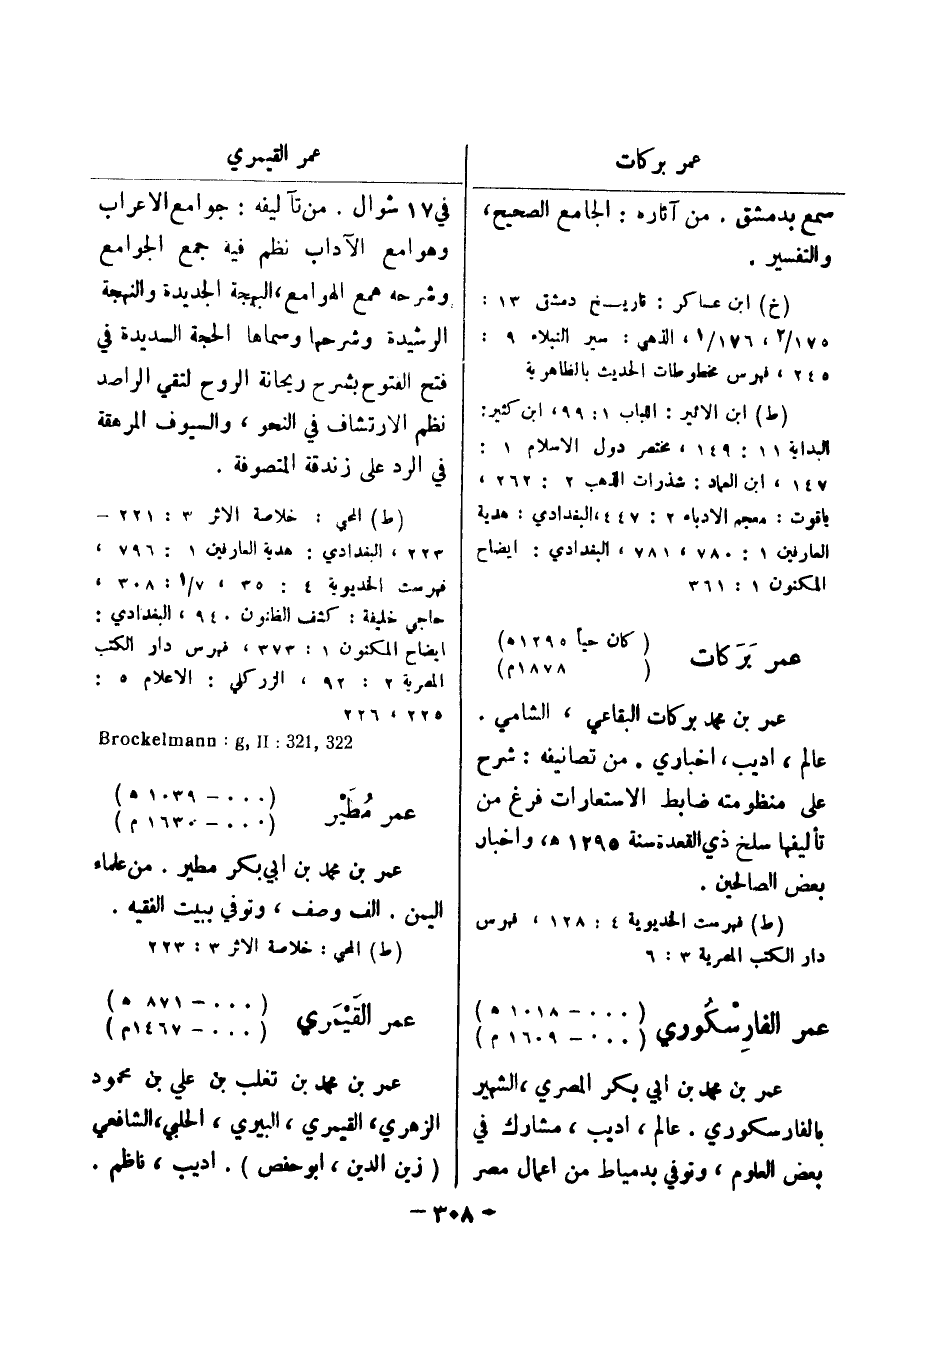 عمر بركات
سمع بدمشق . من آثاره : الجامع الصحيح ،
والتفسير .
(خ) ابن عساكر : تاريخ دمشق ١٣ :
١٧٥/٢ ، ١٧٦/١ ، الذهبي : سير النبلاء ٩ :
٢٤٥ ، فهرس مخطوطات الحديث بالظاهرية
(ط) ابن الاثير : اللباب ١ : ٩٩ ، ابن كثير :
البداية ١١ : ١٤٩ ، مختصر دول الاسلام ١ :
١٤٧ ، ابن العماد : شذرات الذهب ٢ : ٢٦٢ ،
ياقوت : معجم الادباء ٢ : ٤٤٧ ، البغدادي : هدية
العارفين ١ : ٧٨٠ ، ٧٨١ ، البغدادي : ايضاح
المكنون ١ : ٣٦١
عمر بَرَكات (كان حياً ١٢٩٥ ه)
( ١٨٧٨ م)
عمر بن محمد بركات البقاعي ، الشامي .
عالم ، اديب ، اخباري . من تصانيفه : شرح
على منظومته ضابط الاستعارات فرغ من
تأليفها سلخ ذي القعدة سنة ١٢٩٥ ه ، واخبار
بعض الصالحين .
(ط) فهرست الخديوية ٤ : ١٢٨ ، فهرس
دار الكتب المصرية ٣ : ٦
عمر الفارِسْكُوري ( ... - ١٠١٨ ه )
( ... - ١٦٠٩ م )
عمر بن محمد بن ابي بكر المصري ، الشهير
بالفارسكوري . عالم ، اديب ، مشارك في
بعض العلوم ، وتوفي بدمياط من اعمال مصر
عمر القيمري
في ١٧ شوال . من تآليفه : جوامع الاعراب
وهوامع الآداب نظم فيه جمع الجوامع
وشرحه همع الهوامع ، البهجة الجديدة والنهجة
الرشيدة وشرحها وسماها الحجة السديدة في
فتح الفتوح بشرح ريحانة الروح لتقي الراصد
نظم الارتشاف في النحو ، والسيوف المرهقة
في الرد على زندقة المتصوفة .
(ط) المحبي : خلاصة الاثر ٣ : ٢٢١ -
٢٢٣ ، البغدادي : هدية العارفين ١ : ٧٩٦ ،
فهرست الخديوية ٤ : ٣٥ ، ٧/١ : ٣٠٨ ،
حاجي خليفة : كشف الظنون ٩٤٠ ، البغدادي :
ايضاح المكنون ١ : ٣٧٣ ، فهرس دار الكتب
المصرية ٢ : ٩٢ ، الزركلي : الاعلام ٥ :
٢٢٥ ، ٢٢٦
Brockelmann : g, II : 321, 322
عمر مُطَيْر ( ... - ١٠٣٩ ه )
( ... - ١٦٣٠ م )
عمر بن محمد بن ابي بكر مطير . من علماء
اليمن . الف وصف ، وتوفي ببيت الفقيه .
(ط) المحبي : خلاصة الاثر ٣ : ٢٢٣
عمر القَيْمَري ( ... - ٨٧١ ه )
( ... - ١٤٦٧ م)
عمر بن محمد بن تغلب بن علي بن محمود
الزهري ، القيمري ، البيري ، الحلبي ، الشافعي
( زين الدين ، ابو حفص ) . اديب ، ناظم .
- ٣٠٨ -